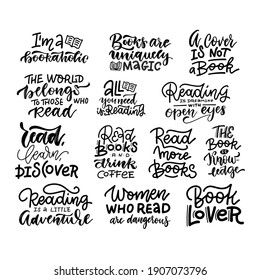 I'm a
bookaholic
Books are
uniquely
MAGIC
A COVER
IS NOT
a Book
THE WORLD
belongs
TO THOSE WHO
Read
all
you
need
is Reading
Reading
IS DREAMING WITH
open eyes
Read,
learn,
DISCOVER
Read
BOOKS
AND
drink
COFFEE
Read
more
Books
THE
Book
IS
Know-
ledge
Reading
IS A LITTLE
Adventure
Women
WHO READ
are dangerous
Book
LOVER
shutterstock.com · 1907073796